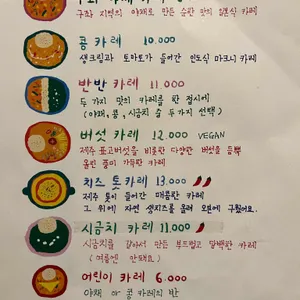 구좌 지역의 야채로 만든 순한 맛의 일본식 카레
콩 카레 10.000
생크림과 토마토가 들어간 인도식 마크니 카레
반반 카레 11.000
두 가지 맛의 카레를 한 접시에
(야채, 콩, 시금치 중 두 가지 선택)
버섯 카레 12.000 VEGAN
제주 표고버섯을 비롯한 다양한 버섯을 듬뿍
올린 풍미 가득한 카레
치즈 톳카레 13.000
제주 톳이 들어간 매콤한 카레
그 위에 자연 생치즈를 올려 오븐에 구웠어요.
시금치 카레 11.000
시금치를 갈아서 만든 부드럽고 담백한 카레
(여름엔 안돼요)
어린이 카레 6.000
야채 or 콩 카레의 반